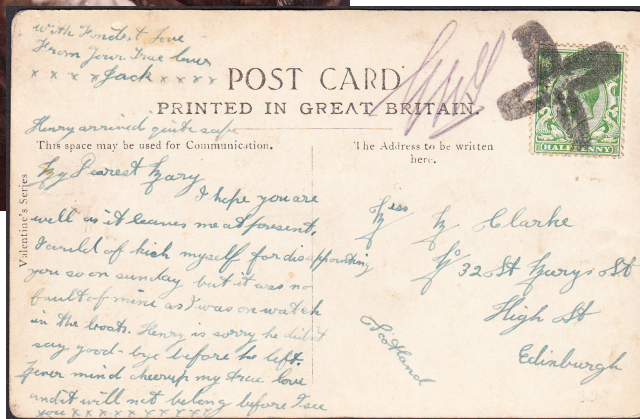 With Fondest Love
From Your True lover
x x x x Jack x x x x
POST CARD
PRINTED IN GREAT BRITAIN.
Henry arrived quite safe
This space may be used for Communication.
The Address to be written
here.
HALFPENNY
Valentine's Series
My Dearest Mary
I hope you are
well as it leaves me at present.
I could of kick myself for disappointing
you so on sunday but it was no
fault of mine as I was on watch
in the boat. Henry is sorry he didn't
say good-bye before he left.
Never mind cheerup my true love
and it will not be long before I see
you x x x x x x x x x x
Miss M Clarke
C/o 32 St Marys St
High St
Edinburgh
Scotland